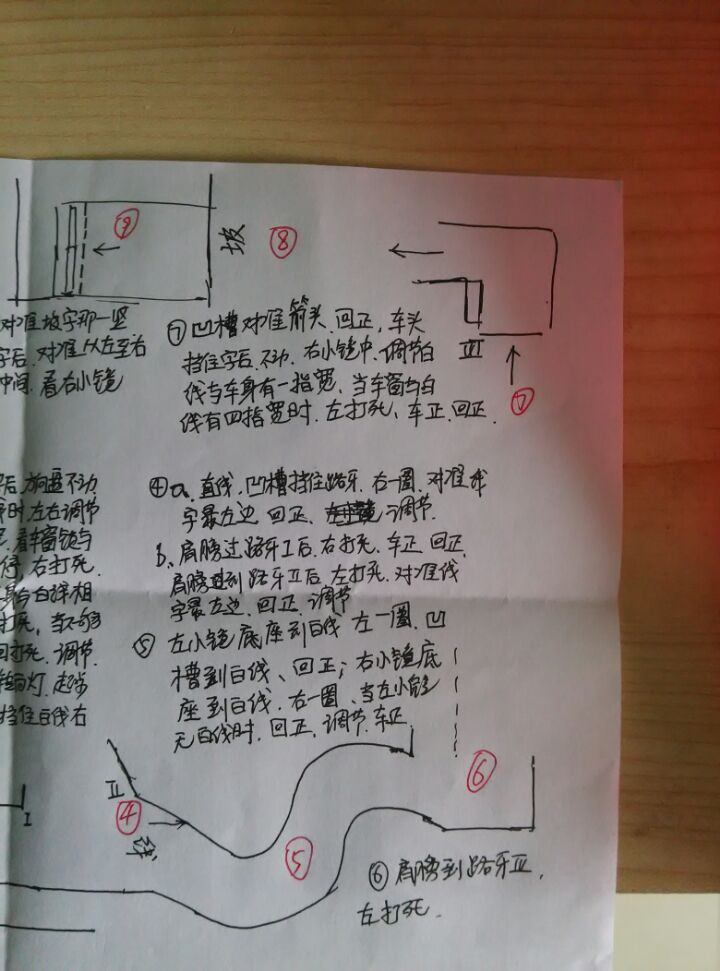 ⑨
坡
⑧
对准坡字那一竖
字后.对准从左至右
中间.看右小镜
⑦凹槽对准箭头.回正,车头
挡住字后.不动.右小镜中.调节白
线与车身有一指宽.当车窗与白
线有四指宽时.左打死、车正.回正.
Ⅲ
⑦
字后.方向盘不动
时.左右调节
看车窗镜与
停.右打死.
与白线相
打死,当不够
回打死.调节.
转向灯.起步
挡住白线右
④a.直线.凹槽挡住路牙.右一圈.对准线
字最左边.回正.调节.
b、肩膀过路牙I后.右打死.车正.回正.
肩膀到路牙Ⅱ后.左打死.对准线
字最左边.回正.调节
⑤左小镜底座到白线.左一圈.凹
槽到白线、回正;右小镜底
座到白线.右一圈、当左小镜
无白线时.回正.调节.车正.
Ⅱ
I
④
线
⑤
⑥
⑥肩膀到路牙Ⅲ,
左打死.